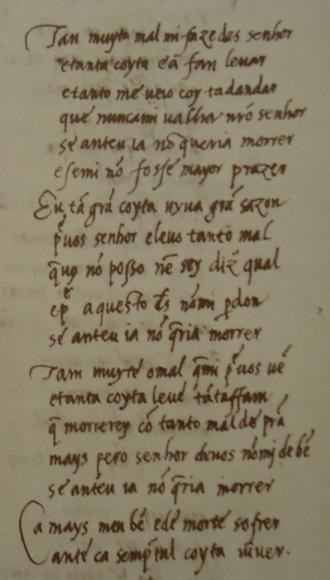 Tan muyto mal mi fazedes senhor
etanta coyta eã fan levar
etanto me veio coy tadandar
que nuncami valha nrõ senhor
se anteu ia nõ queria morrer
esemi nõ fosse mayor prazer
Eu tã grã coyta vyva grã sazon
pvos senhor elevo tanto mal
que nõ posso nẽ sey diz qual
epẽ aquesto ds nõmi pdon
se anteu ia nõ qria morrer
Tam muyte omal qmi pvos vẽ
etanta coyta levẽ tã taffam
q morrerey cõ tanto mal de prã
mays pero senhor devos nõmi debẽ
se anteu ia nõ qria morrer
Ca mays men bẽ ede morte sofrer
ante ca semptal coyta viver.